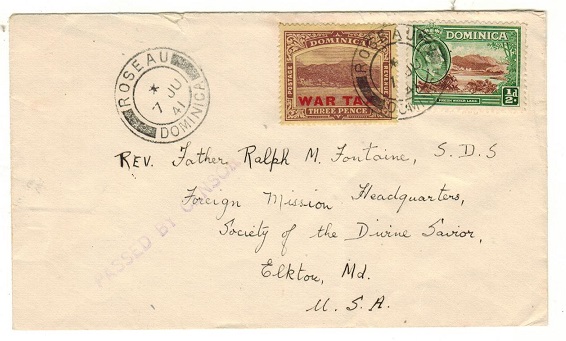 ROSEAU
* 7 JU 41
DOMINICA
DOMINICA
POSTAGE
WAR TAX
THREE PENCE
ROSEAU
DOMINICA
FRESH WATER LAKE
½d.
REV. Father Ralph M. Fontaine, S.D.S
Foreign Mission Headquarters,
Society of the Divine Savior,
Elkton, Md.
U.S.A.
PASSED BY CENSOR